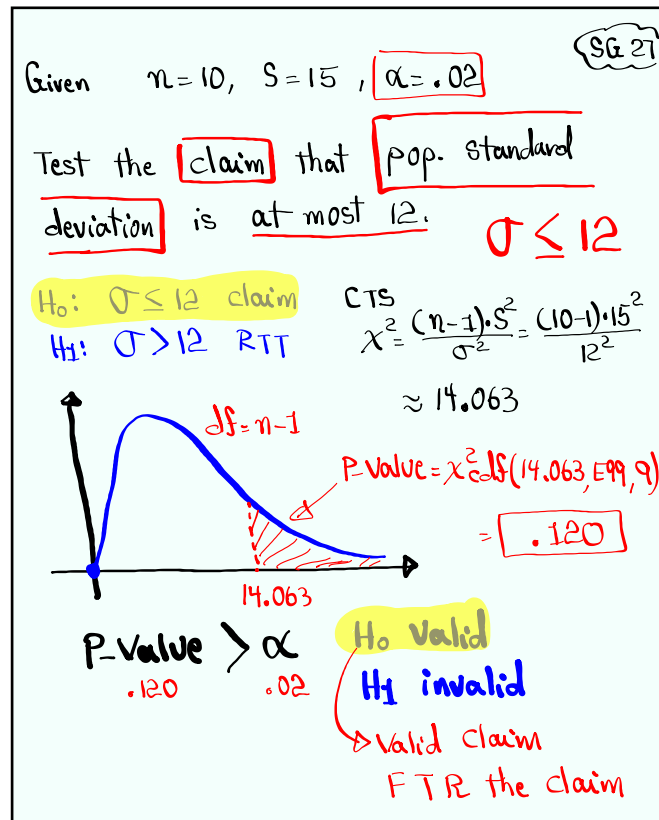 SG 27
Given n=10, S=15, α=.02
Test the claim that pop. standard
deviation is at most 12. σ≤12
H₀: σ≤12 claim
H₁: σ>12 RTT
CTS
χ²=(n-1)·S²/σ²=(10-1)·15²/12²
≈14.063
df=n-1
P-value=χ²cdf(14.063,E99,9)
=.120
14.063
P-value > α
.120 .02
H₀ valid
H₁ invalid
Valid claim
FTR the claim